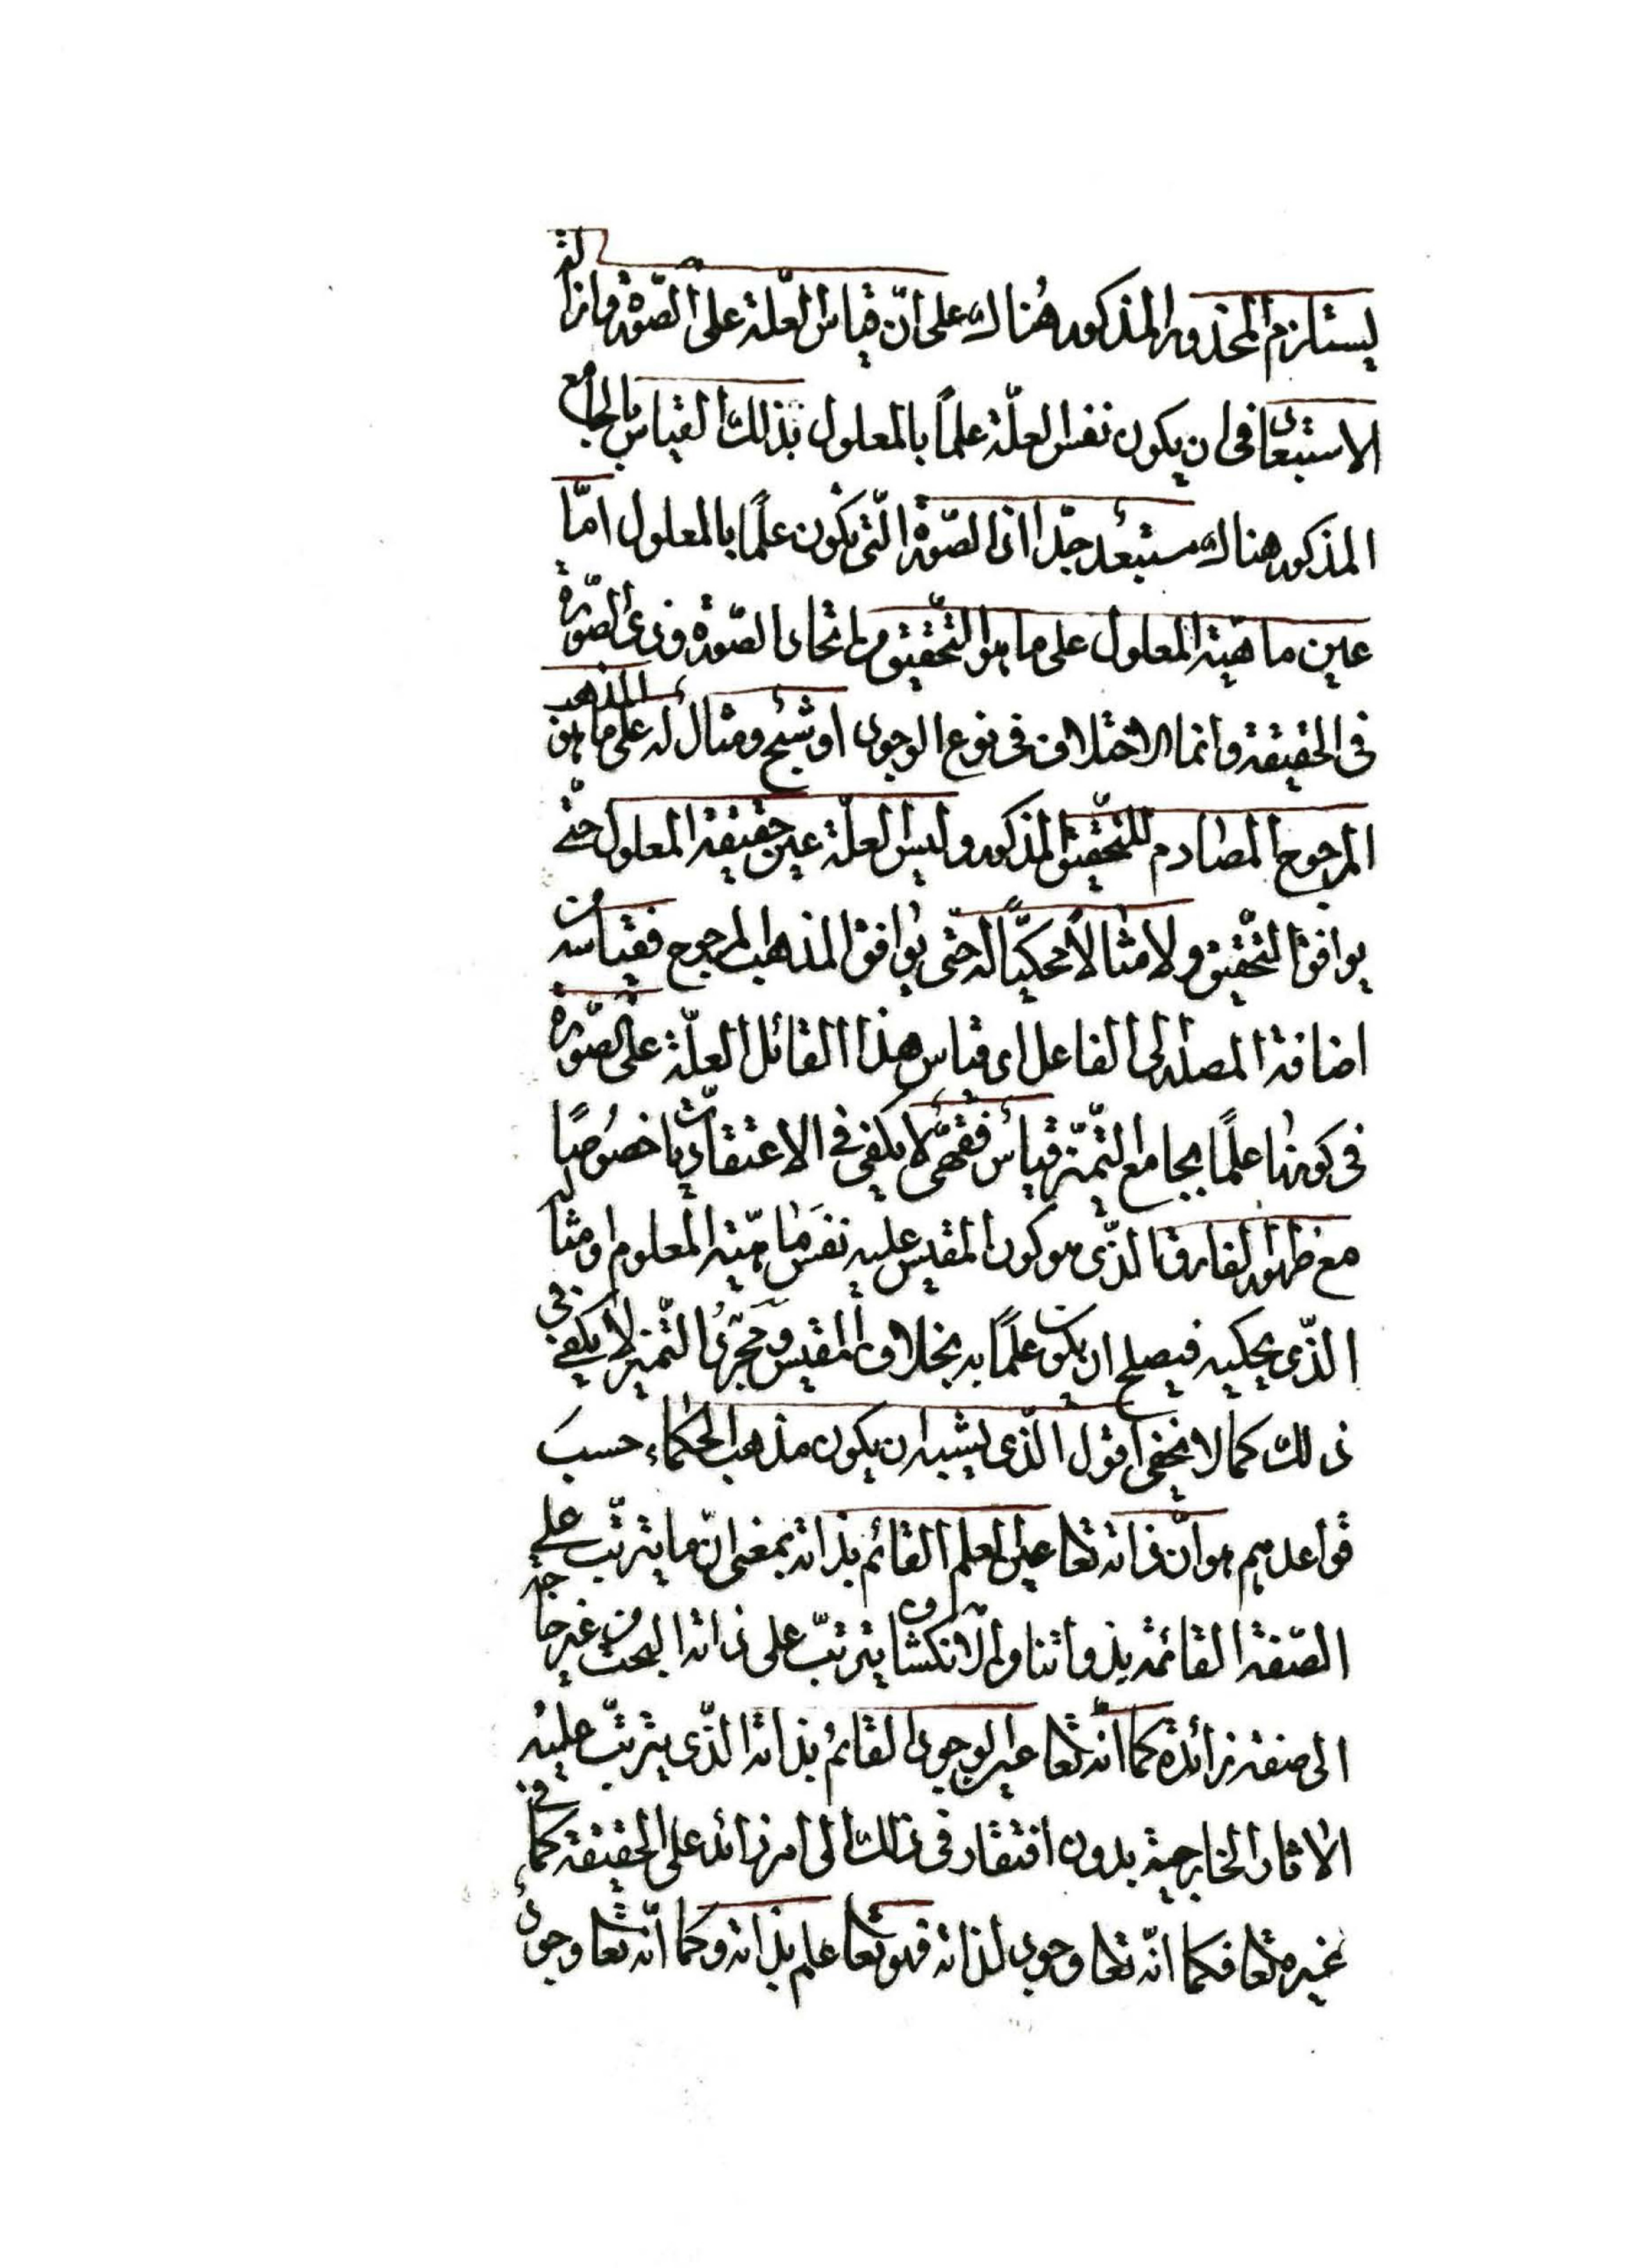 يستلزم المحذور المذكور هناك على انّ قياس العلّة على الصّورة وازالة
الاستبعاد فى ان يكون نفس العلّة علماً بالمعلول بذلك القياس بالجامع
المذكور هناك مستبعد جدّا اذ الصّورة الّتى تكون علمًا بالمعلول امّا
عين ماهيّة المعلول على ما هو التّحقيق من اتحاد الصّورة وذى الصّورة
فى الحقيقة وانما الاختلاف فى نوع الوجود او شبح ومثال له على ما هو المذهب
المرجوح المصادم للتّحقيق المذكور وليس العلّة عين حقيقة المعلول حتّى
يوافق التحقيق ولا مثالاً محكيّاً له حتّى يوافق المذهب المرجوح فقياسه من
اضافة المصدر الى الفاعل اى قياس هذا القائل العلّة على الصّورة
فى كونها علمًا بجامع التّميّز قياس فقهىّ لا يكفى فى الاعتقاديّات خصوصًا
مع ظهور الفارق الّذى هو كون المقيس عليه نفس ماهيّة المعلوم او مثاله
الّذى يحكيه فيصلح ان يكون علمًا به بخلاف المقيس ومجرّد التّميّز لا يكفى فى
ذلك كما لا يخفى اقول الّذى يشبه ان يكون مذهب الحكماء حسب
قواعدهم هو انّ ذاته تعا عين العلم القائم بذاته بمعنى انّ ما يترتّب على
الصّفة القائمة بذواتنا وهو الانكشاف يترتّب على ذاته البحت من غير حاجة
الى صفة زائدة كما انّه تعا عين الوجود القائم بذاته الّذى يترتّب عليه
الاثار الخارجية بدون افتقار فى ذلك الى امر زائد على الحقيقة كما فى
غيره تعا فكما انّه تعا وجود لذاته فهو تعا علم بذاته وكما انّه تعا وجود